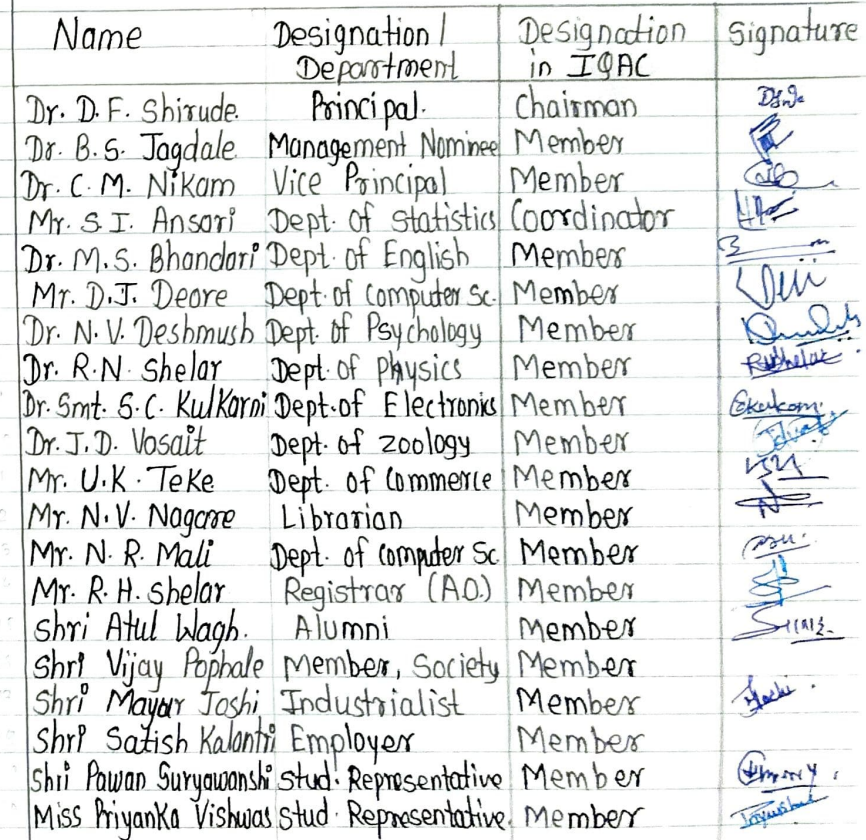 Name Designation/ Designation Signature
Department in IQAC
Dr. D.F. Shirude. Principal. Chairman
Dr. B.S. Jagdale Management Nominee Member
Dr. C.M. Nikam Vice Principal Member
Mr. S.I. Ansari Dept. of Statistics Coordinator
Dr. M.S. Bhandari Dept. of English Member
Mr. D.J. Deore Dept. of Computer Sc. Member
Dr. N.V. Deshmush Dept. of Psychology Member
Dr. R.N. Shelar Dept. of Physics Member RNShelar
Dr. Smt. S.C. Kulkarni Dept. of Electronics Member
Dr. J.D. Vasait Dept. of Zoology Member
Mr. U.K. Teke Dept. of Commerce Member
Mr. N.V. Nagare Librarian Member
Mr. N.R. Mali Dept. of Computer Sc. Member
Mr. R.H. Shelar Registrar (A.O.) Member
Shri Atul Wagh. Alumni Member
Shri Vijay Pophale Member, Society Member
Shri Mayur Joshi Industrialist Member
Shri Satish Kalantri Employer Member
Shri Pawan Suryawanshi Stud. Representative Member
Miss Priyanka Vishwas Stud. Representative. Member